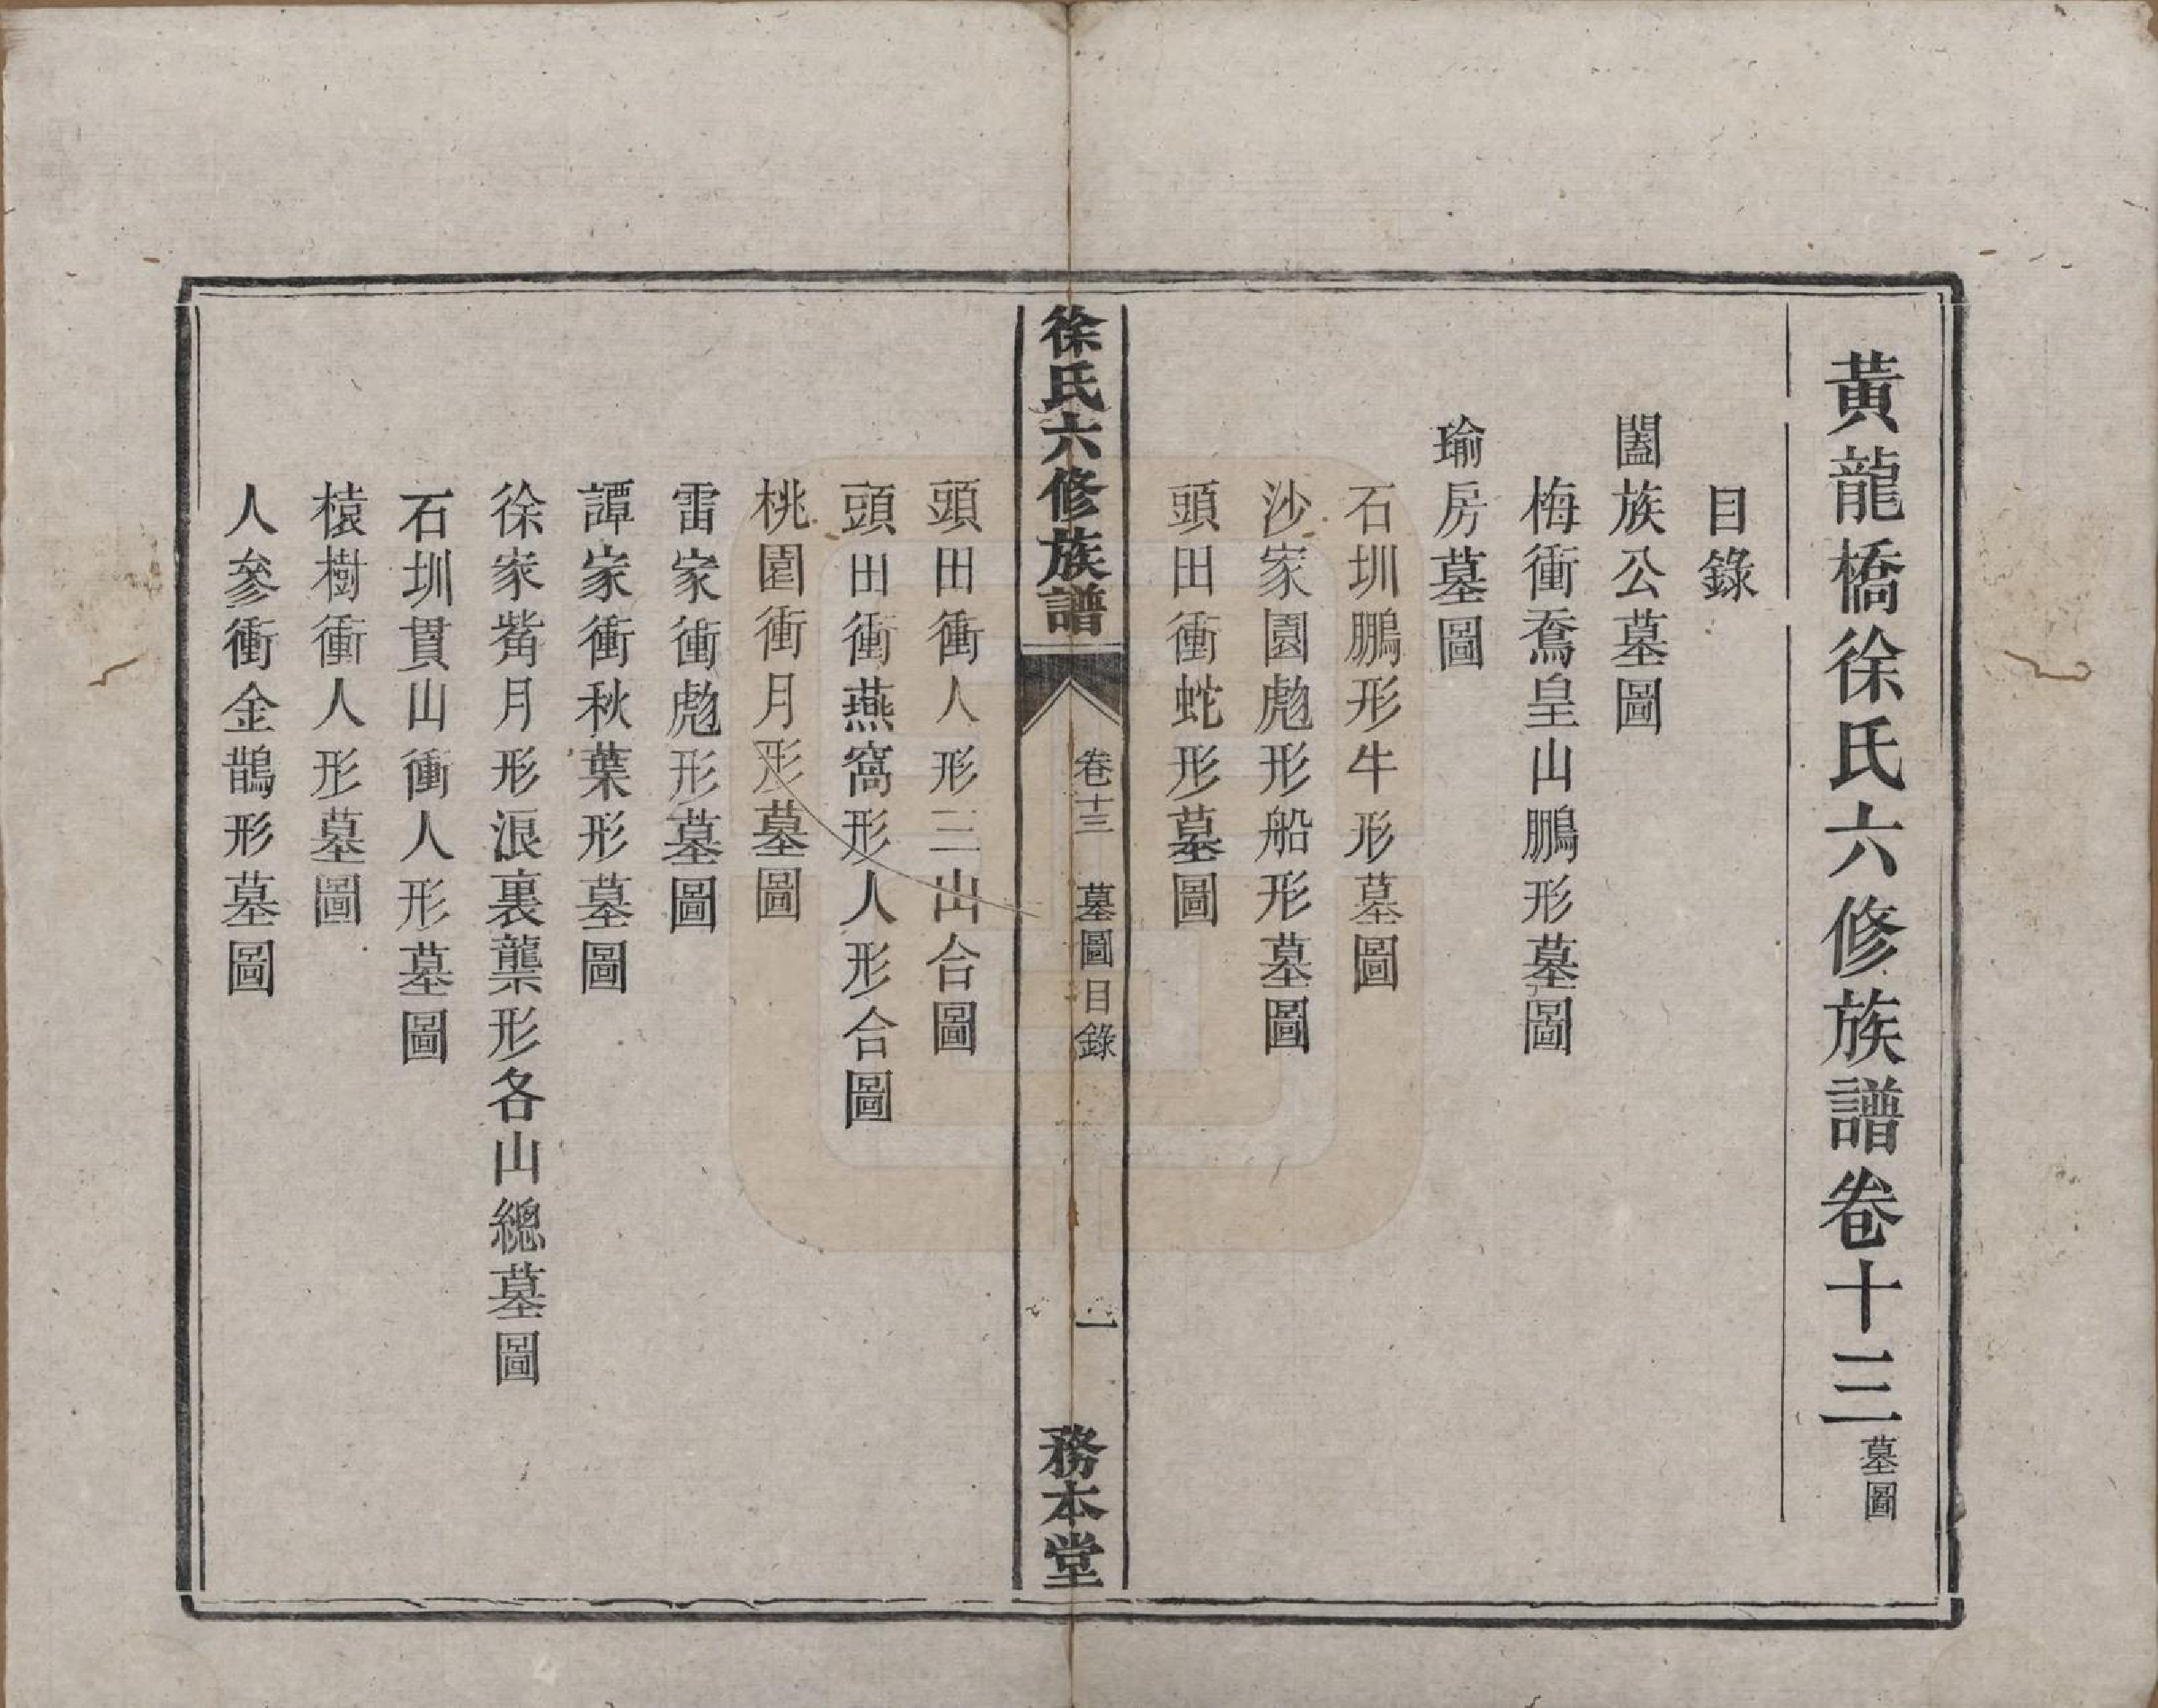 黃龍橋徐氏六修族譜卷十三墓圖
目錄
闔族公墓圖
梅衝鴌皇山鵬形墓圖
瑜房墓圖
石圳鵬形牛形墓圖
沙家園彪形船形墓圖
頭田衝蛇形墓圖
徐氏六修族譜
卷十三 墓圖目錄 一
務本堂
頭田衝人形三山合圖
頭田衝燕窩形人形合圖
桃園衝月形墓圖
雷家衝彪形墓圖
譚家衝秋葉形墓圖
徐家觜月形浪裏龒形各山總墓圖
石圳貫山衝人形墓圖
榬樹衝人形墓圖
人參衝金鵲形墓圖